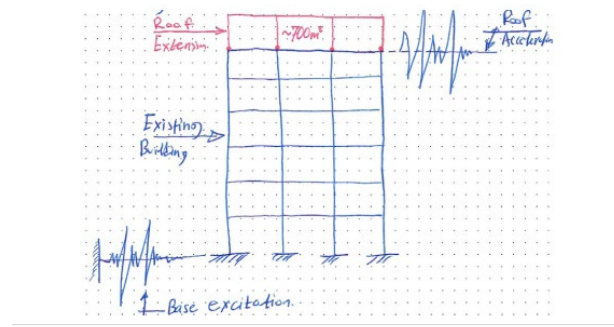 Roof
Extension.
~700m²
Roof
Acceleration
Existing
Building
Base excitation.